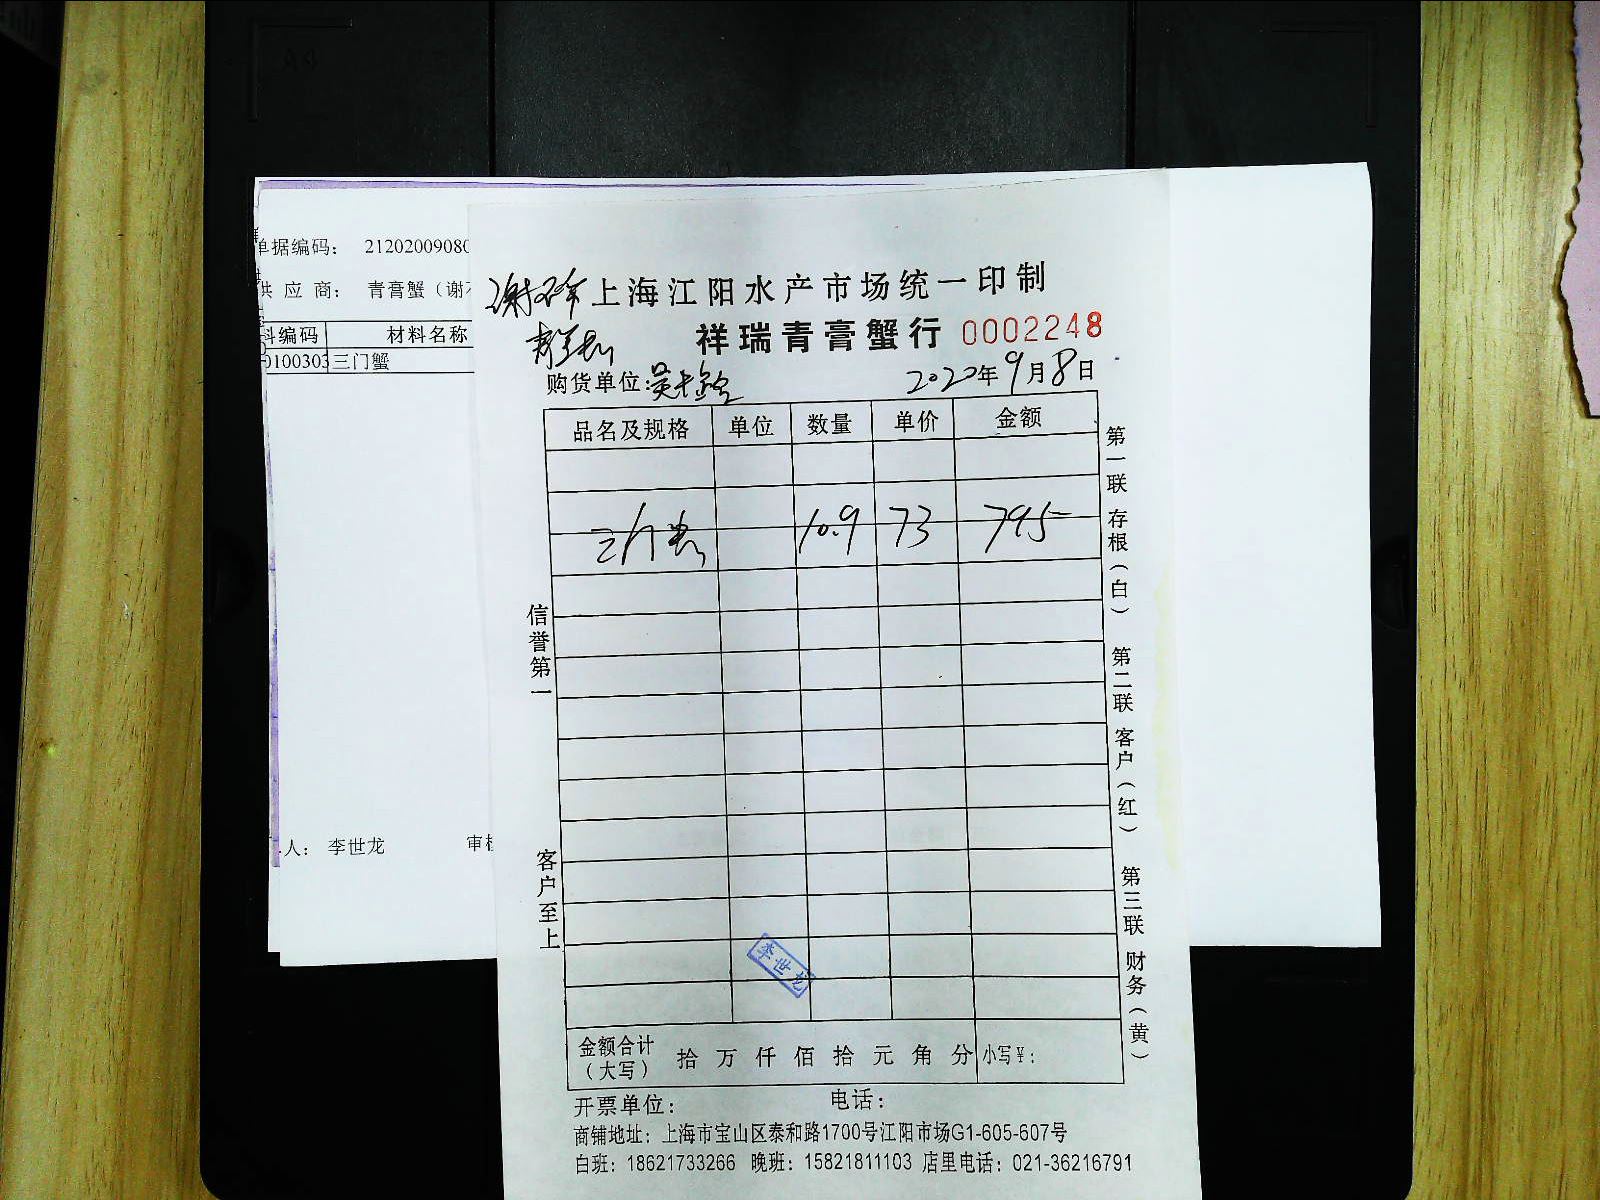 单据编码： 21202009080
供 应 商： 青膏蟹（谢
料编码 材料名称
0100303 三门蟹
人： 李世龙 审核
上海江阳水产市场统一印制
祥瑞青膏蟹行 0002248
购货单位: 2020年9月8日
品名及规格 单位 数量 单价 金额
三门 10.9 73 795
信誉第一
客户至上
第一联 存根（白） 第二联 客户（红） 第三联 财务（黄）
李世龙
金额合计（大写） 拾 万 仟 佰 拾 元 角 分 小写￥：
开票单位： 电话：
商铺地址：上海市宝山区泰和路1700号江阳市场G1-605-607号
白班：18621733266 晚班：15821811103 店里电话：021-36216791